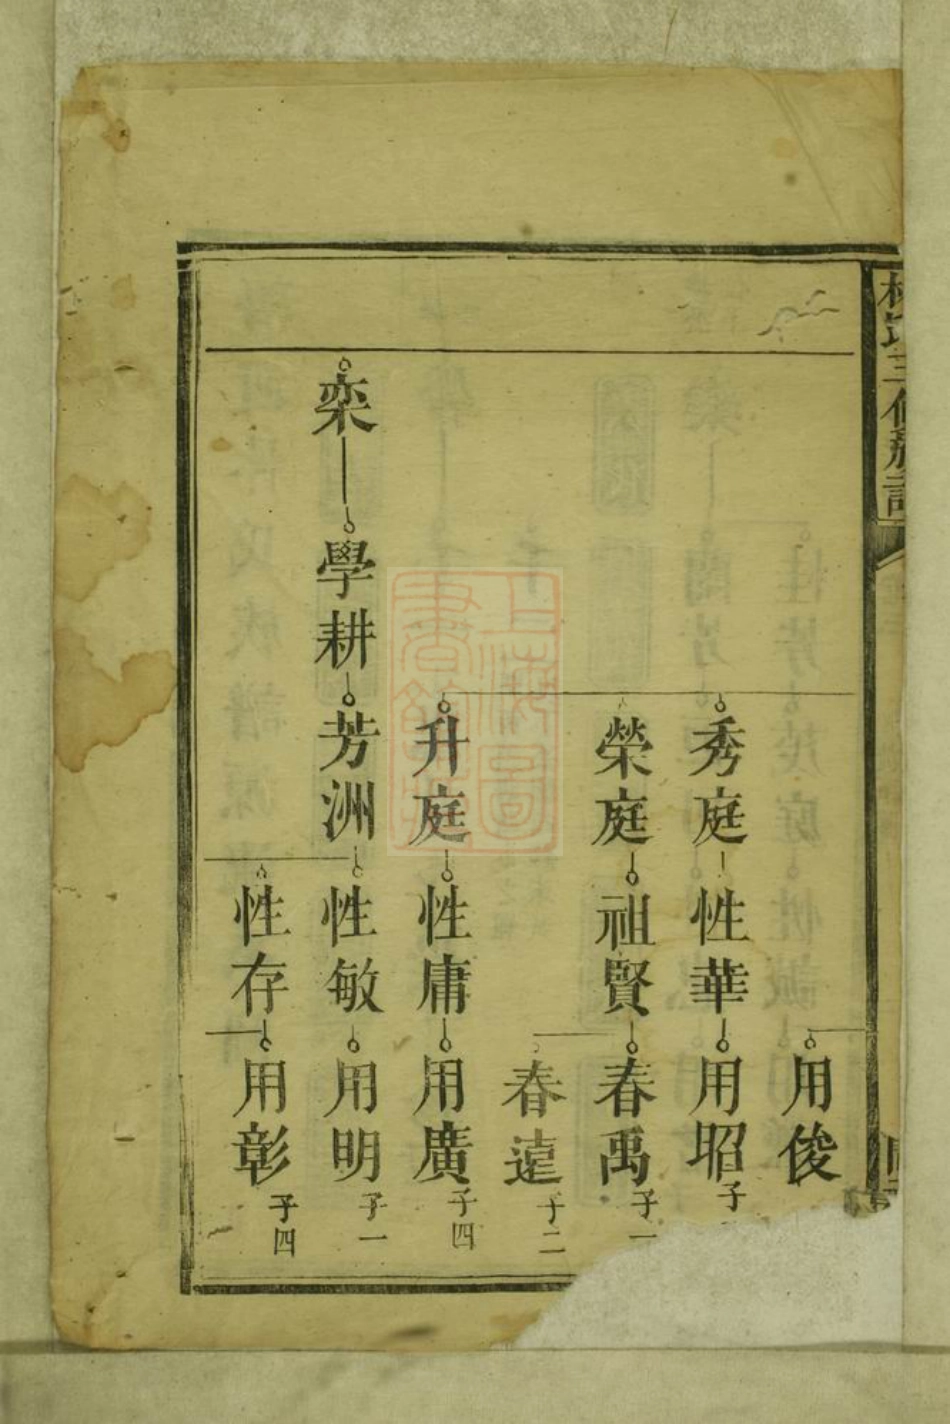 三修族譜
用俊
秀庭 性華 用昭 子
榮庭 祖賢 春禹 子一
春遠 子二
升庭 性庸 用廣 子四
栾 學耕 芳洲 性敏 用明 子一
性存 用彰 子四
上海圖書館藏